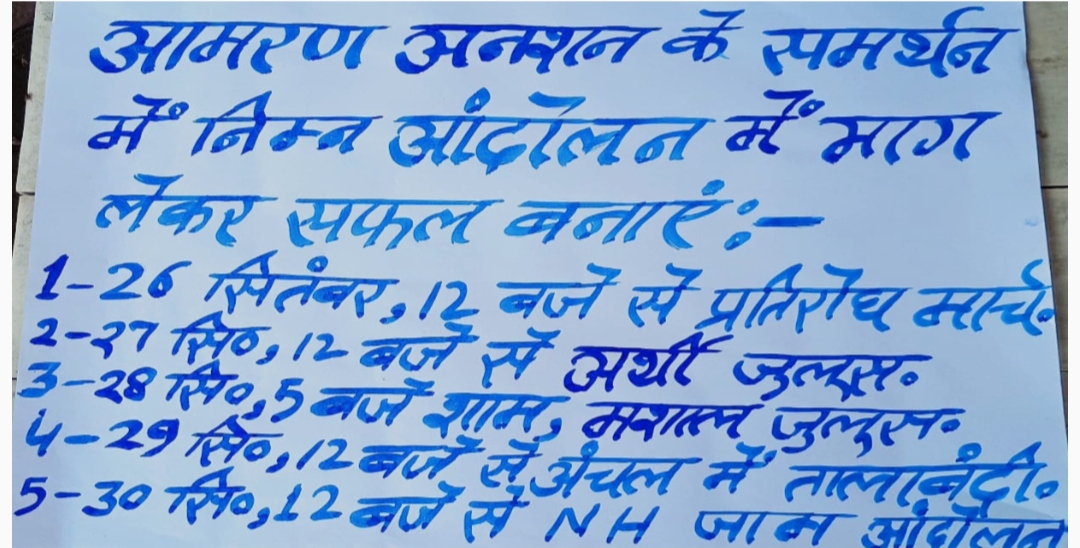 आमरण अनशन के समर्थन
में निम्न आंदोलन में भाग
लेकर सफल बनाएं:-
1-26 सितंबर, 12 बजे से प्रतिरोध मार्च.
2-27 सि०, 12 बजे से अर्थी जुलूस.
3-28 सि०, 5 बजे शाम, मशाल जुलूस.
4-29 सि०, 12 बजे से अंचल में तालाबंदी.
5-30 सि०, 12 बजे से NH जाम आंदोलन